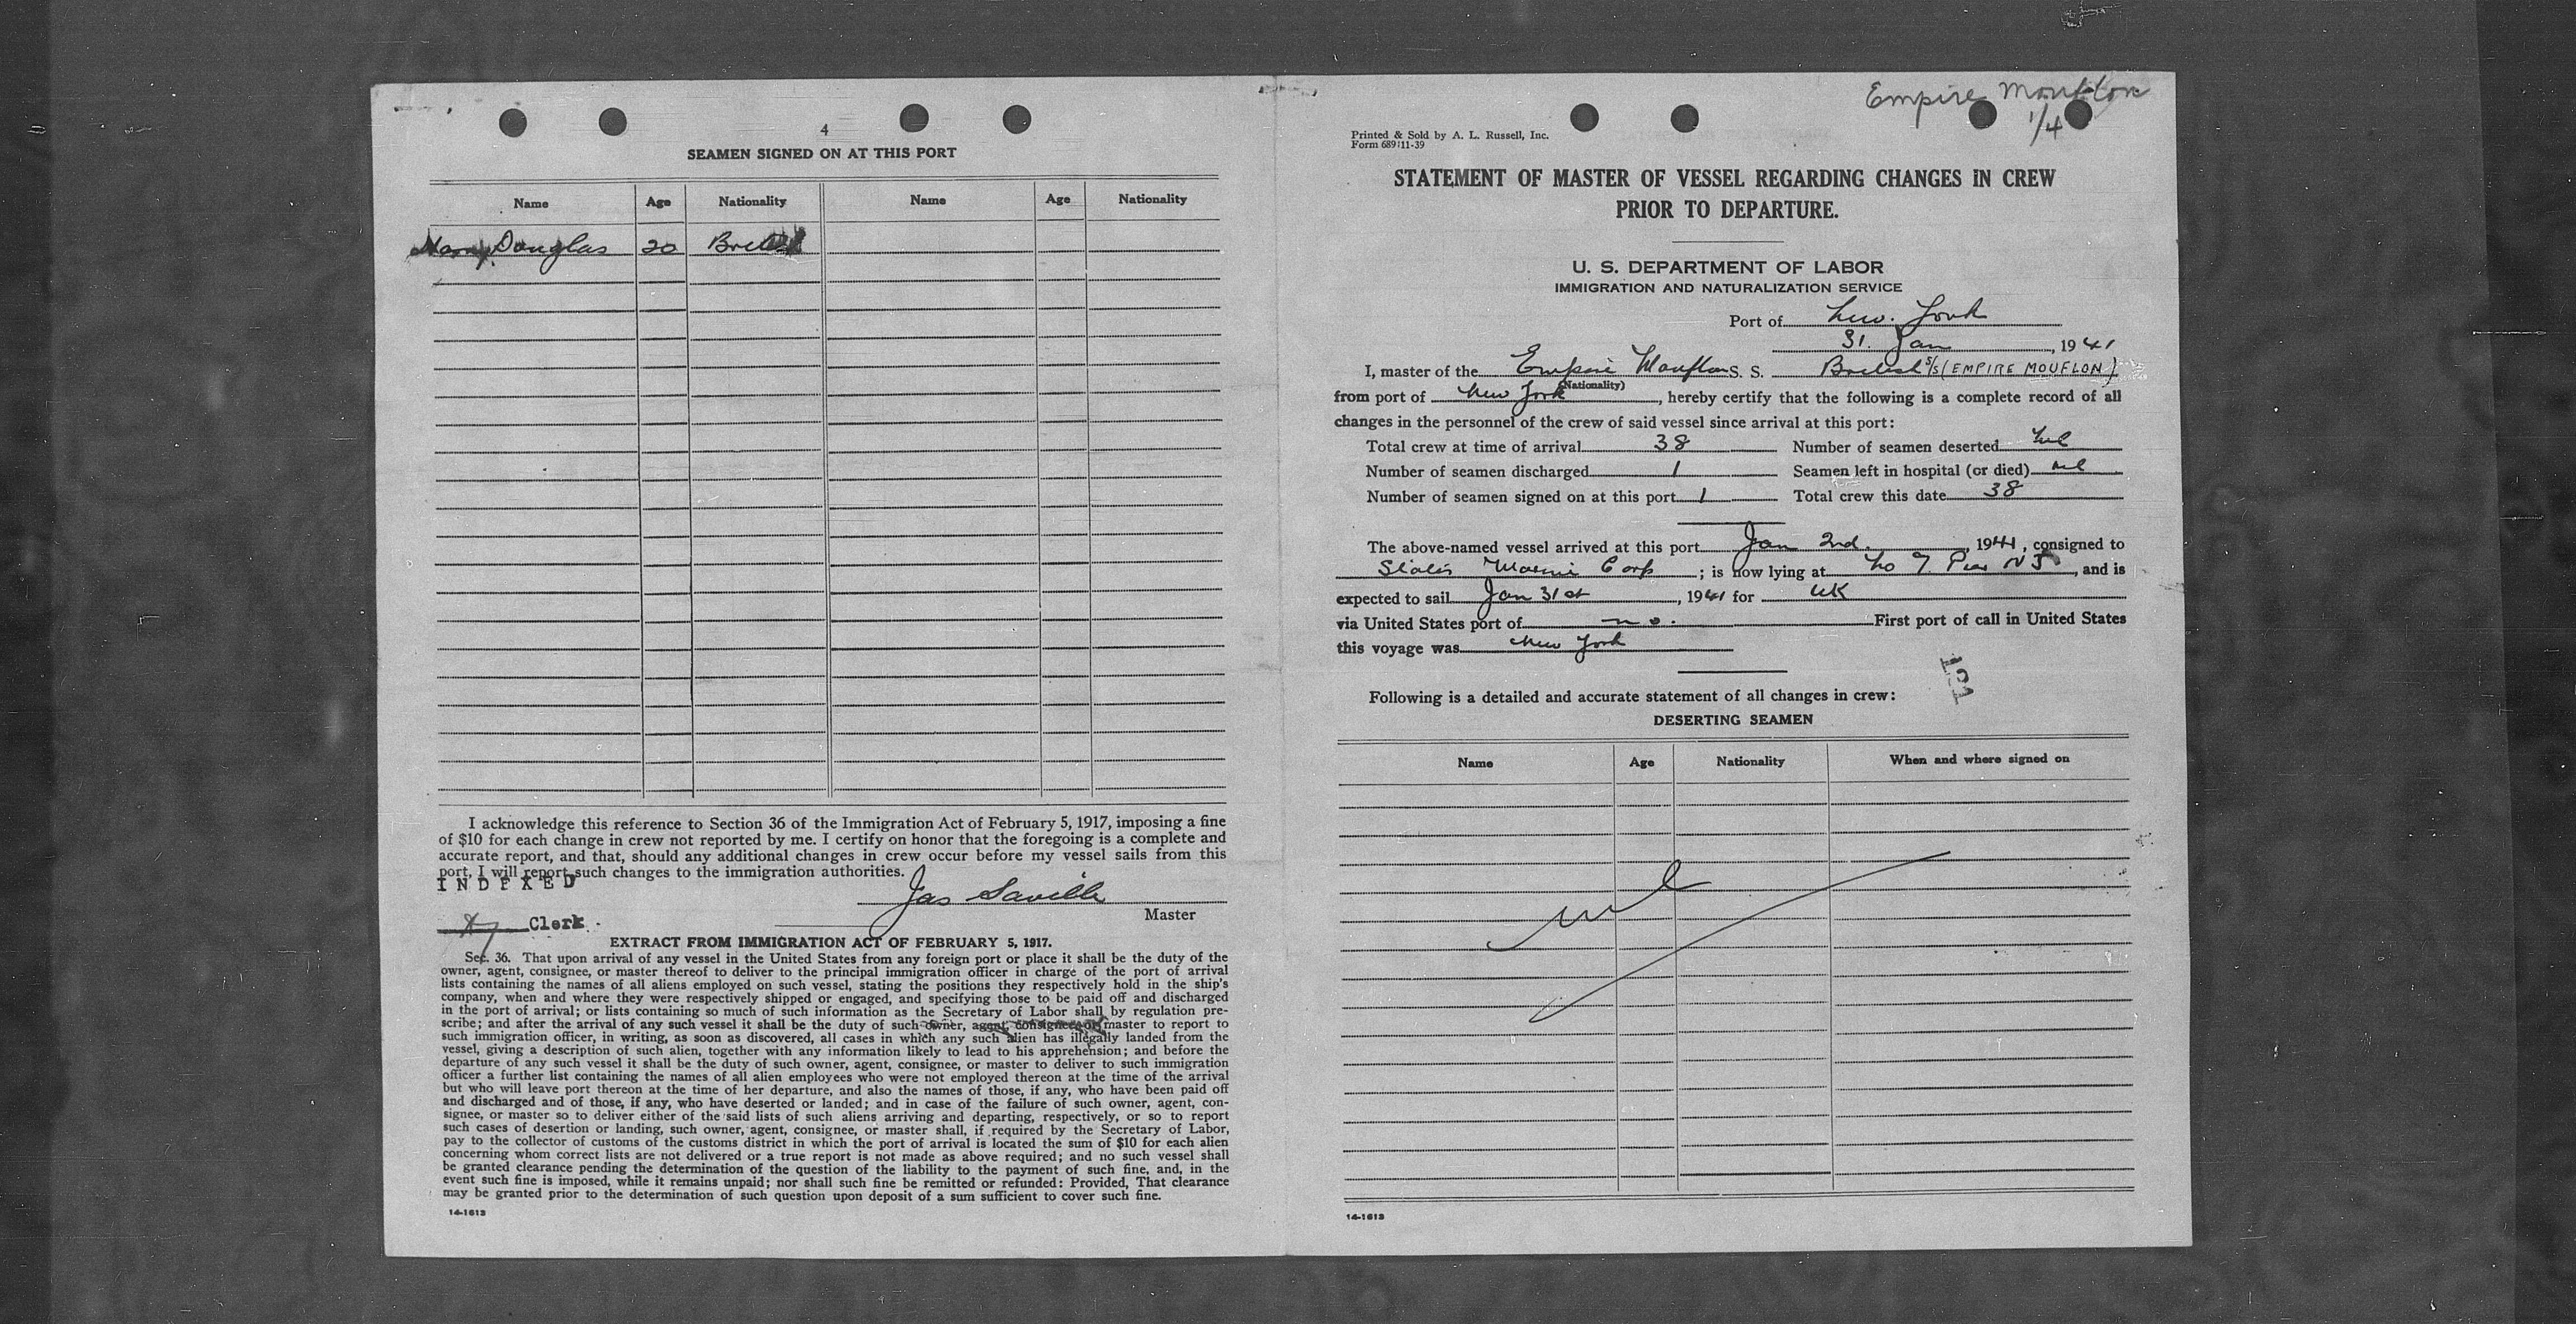 4
SEAMEN SIGNED ON AT THIS PORT
Name Age Nationality Name Age Nationality
Harry Douglas 20 British
I acknowledge this reference to Section 36 of the Immigration Act of February 5, 1917, imposing a fine
of $10 for each change in crew not reported by me. I certify on honor that the foregoing is a complete and
accurate report, and that, should any additional changes in crew occur before my vessel sails from this
port, I will report such changes to the immigration authorities.
INDEXED
Jas Saville
Clerk.
Master
EXTRACT FROM IMMIGRATION ACT OF FEBRUARY 5, 1917.
Sec. 36. That upon arrival of any vessel in the United States from any foreign port or place it shall be the duty of the
owner, agent, consignee, or master thereof to deliver to the principal immigration officer in charge of the port of arrival
lists containing the names of all aliens employed on such vessel, stating the positions they respectively hold in the ship's
company, when and where they were respectively shipped or engaged, and specifying those to be paid off and discharged
in the port of arrival; or lists containing so much of such information as the Secretary of Labor shall by regulation pre-
scribe; and after the arrival of any such vessel it shall be the duty of such owner, agent, consignee, or master to report to
such immigration officer, in writing, as soon as discovered, all cases in which any such alien has illegally landed from the
vessel, giving a description of such alien, together with any information likely to lead to his apprehension; and before the
departure of any such vessel it shall be the duty of such owner, agent, consignee, or master to deliver to such immigration
officer a further list containing the names of all alien employees who were not employed thereon at the time of the arrival
but who will leave port thereon at the time of her departure, and also the names of those, if any, who have been paid off
and discharged and of those, if any, who have deserted or landed; and in case of the failure of such owner, agent, con-
signee, or master so to deliver either of the said lists of such aliens arriving and departing, respectively, or so to report
such cases of desertion or landing, such owner, agent, consignee, or master shall, if required by the Secretary of Labor,
pay to the collector of customs of the customs district in which the port of arrival is located the sum of $10 for each alien
concerning whom correct lists are not delivered or a true report is not made as above required; and no such vessel shall
be granted clearance pending the determination of the question of the liability to the payment of such fine, and, in the
event such fine is imposed, while it remains unpaid; nor shall such fine be remitted or refunded: Provided, That clearance
may be granted prior to the determination of such question upon deposit of a sum sufficient to cover such fine.
14-1613
Empire Mouflon
1/4
Printed & Sold by A. L. Russell, Inc.
Form 689 11-39
STATEMENT OF MASTER OF VESSEL REGARDING CHANGES IN CREW
PRIOR TO DEPARTURE.
U. S. DEPARTMENT OF LABOR
IMMIGRATION AND NATURALIZATION SERVICE
Port of New York
31. Jan, 1941
I, master of the Empire Mouflon S. S. British S/S (EMPIRE MOUFLON)
(Nationality)
from port of New York, hereby certify that the following is a complete record of all
changes in the personnel of the crew of said vessel since arrival at this port:
Total crew at time of arrival 38 Number of seamen deserted Nil
Number of seamen discharged 1 Seamen left in hospital (or died) nil
Number of seamen signed on at this port 1 Total crew this date 38
The above-named vessel arrived at this port Jan 2nd, 1941, consigned to
States Marine Corp; is now lying at No 7 Pier NJ, and is
expected to sail Jan 31st, 1941 for UK
via United States port of no. First port of call in United States
this voyage was New York
191
Following is a detailed and accurate statement of all changes in crew:
DESERTING SEAMEN
Name Age Nationality When and where signed on
nil
14-1613